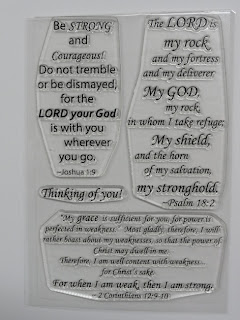 Be STRONG
and
Courageous!
Do not tremble
or be dismayed,
for the
LORD your God
is with you
wherever
you go.
~Joshua 1:9
Thinking of you!
The LORD is
my rock
and my fortress
and my deliverer
My GOD,
my rock
in whom I take refuge;
My shield,
and the horn
of my salvation,
my stronghold.
~Psalm 18:2
"My grace is sufficient for you, for power is
perfected in weakness." Most gladly, therefore, I will
rather boast about my weaknesses, so that the power of
Christ may dwell in me.
Therefore, I am well content with weakness...
for Christ's sake.
For when I am weak, then I am strong.
~2 Corinthians 12:9-10